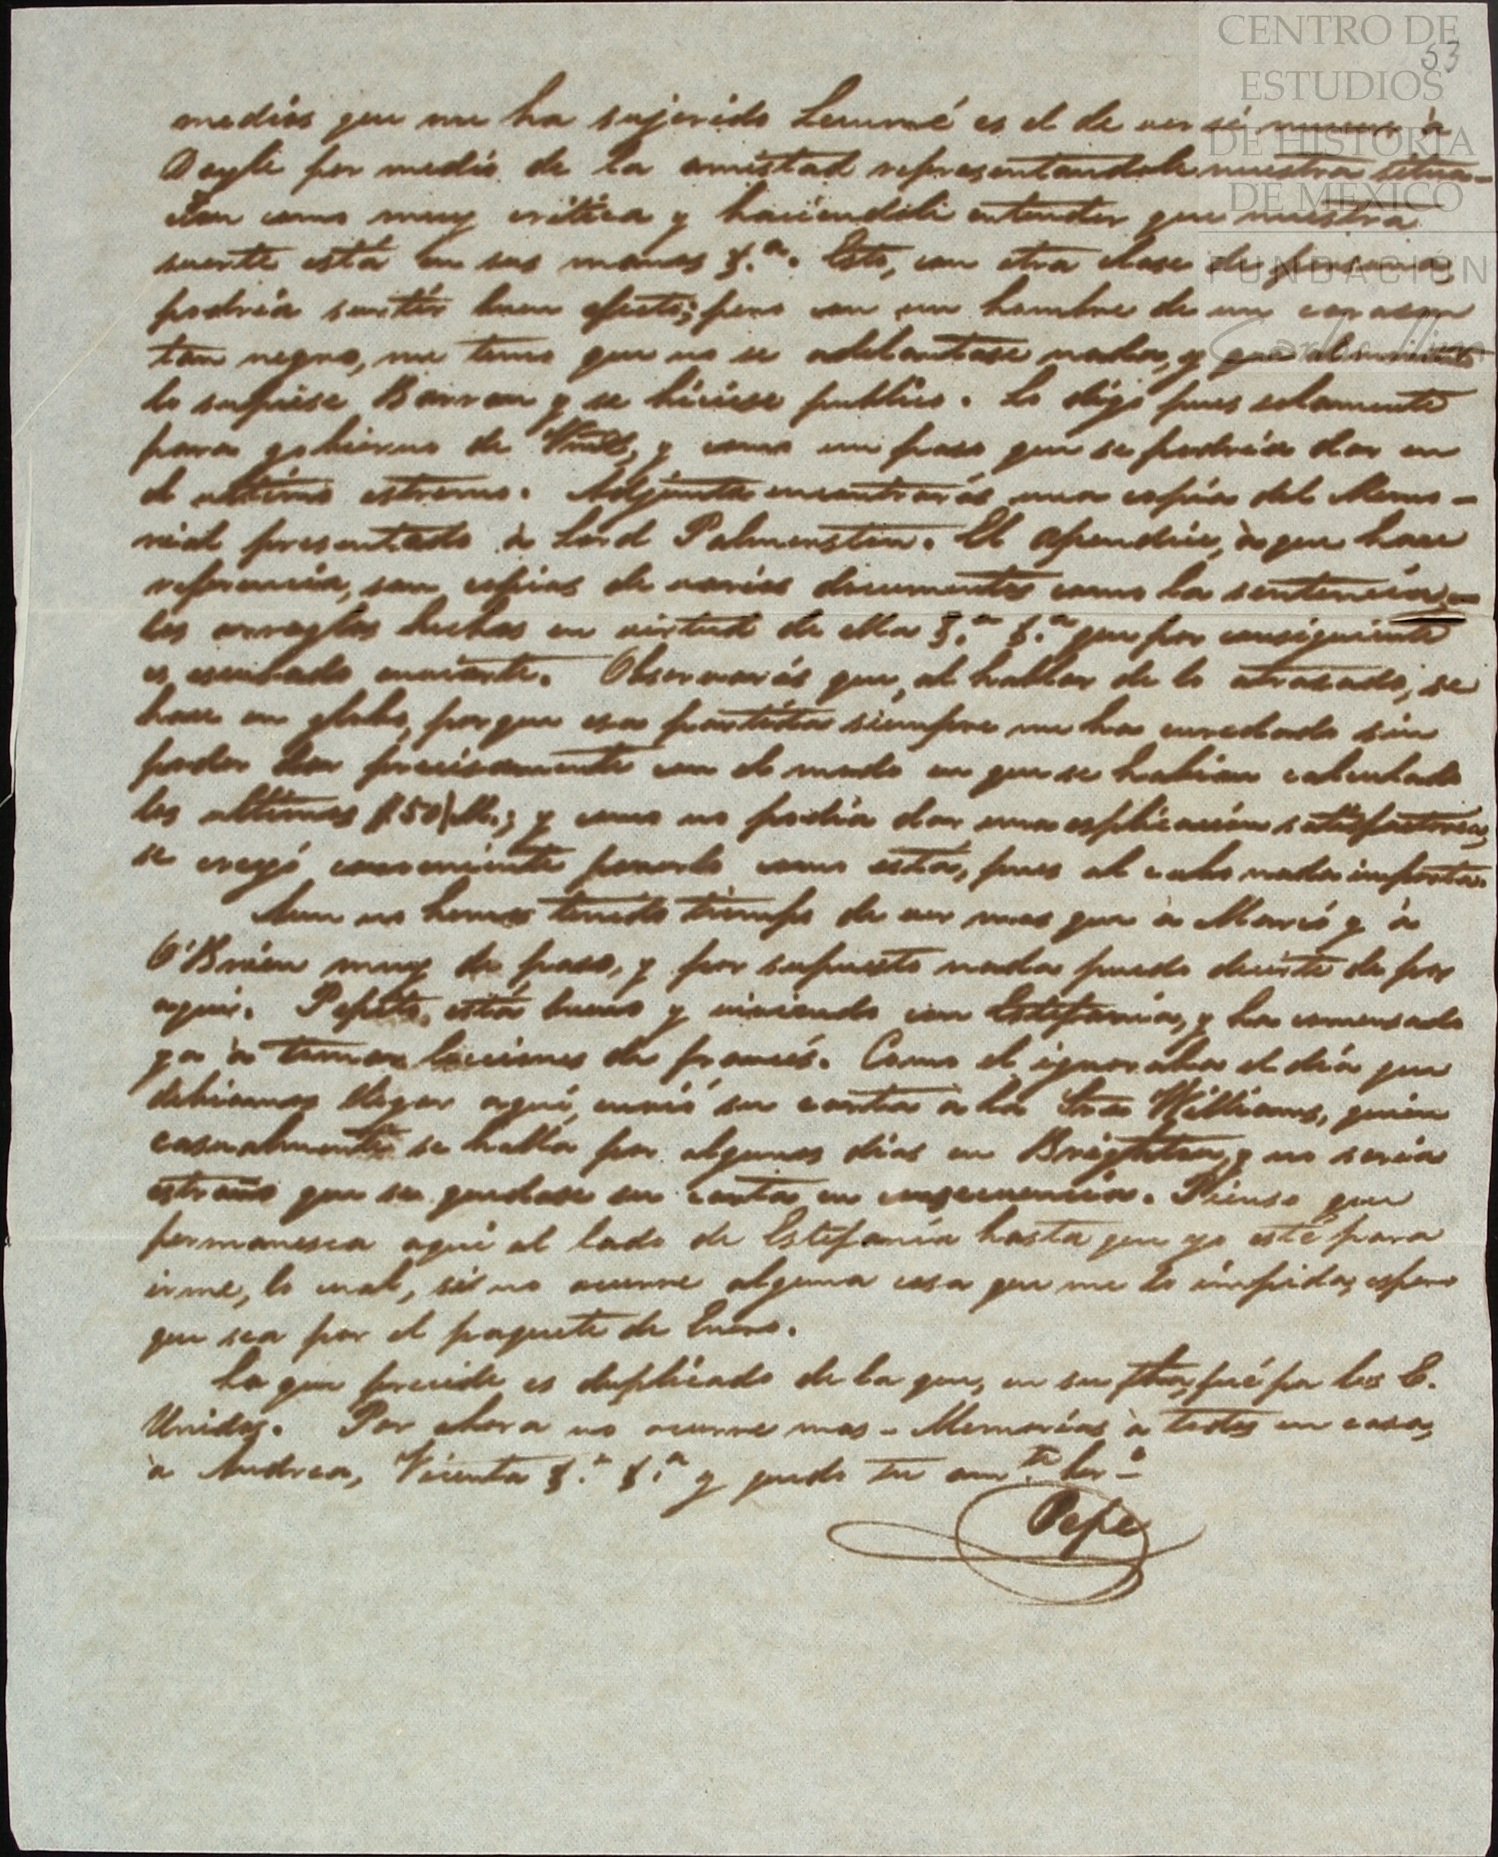 CENTRO DE
ESTUDIOS
DE HISTORIA
DE MEXICO
FUNDACION
53
medios que me ha sujerido Lecumé es el de ver si mueve à
Doyle por medio de la amistad representandole nuestra situa-
cion como muy critica y haciendole entender que nuestra
suerte está en sus manos &.ª. Esto, con otra clase de persona
podria surtir buen efecto; pero con un hombre de un corason
tan negro, me temo que no se adelantase nada, y que
lo supiese Barron y se hiciese publico. Lo digo pues solamente
para gobierno de Vmds, y como un paso que se podria dar en
el ultimo estremo. Adjunta encontrarás una copia del Memo-
rial presentado à Lord Palmerston. El apendice, à que hace
referencia, son copias de varios documentos como la sentencia,
los arreglos hechos en virtud de ella &.ª &.ª que por consiguiente
es escusado enviarte. Observarás que, al hablar de lo atrasado, se
hace en globo, porque esa partida siempre me ha enredado sin
poder dar precisamente con el modo en que se habian calculado
los ultimos $50; y como no podia dar una esplicacion satisfactoria,
se creyó conveniente ponerlo como está, pues al cabo nada importa.
Aun no hemos tenido tiempo de ver mas que à Mario y à
O'Brien muy de paso, y por supuesto nada puedo decirte de por
aqui. Pepito, está bueno y viviendo con Estefania, y ha comensado
ya à tomar lecciones de francés. Como el ignoraba el dia que
debiamos llegar aqui, envió su carta à la Sra Williams, quien
casualmente se halla por algunos dias en Brighton, y no seria
estraño que se quedase su carta en consecuencia. Pienso que
permanesca aqui al lado de Estefania hasta que yo esté para
irme, lo cual, si no ocurre alguna cosa que me lo impida, espero
que sea por el paquete de Enero.
La que precede es duplicado de la que, en su fha, fué por los E.
Unidos. Por ahora no ocurre mas - Memorias à todos en casa,
à Andrea, Vicenta &.ª &.ª y quedo tu amte herº
Pepe